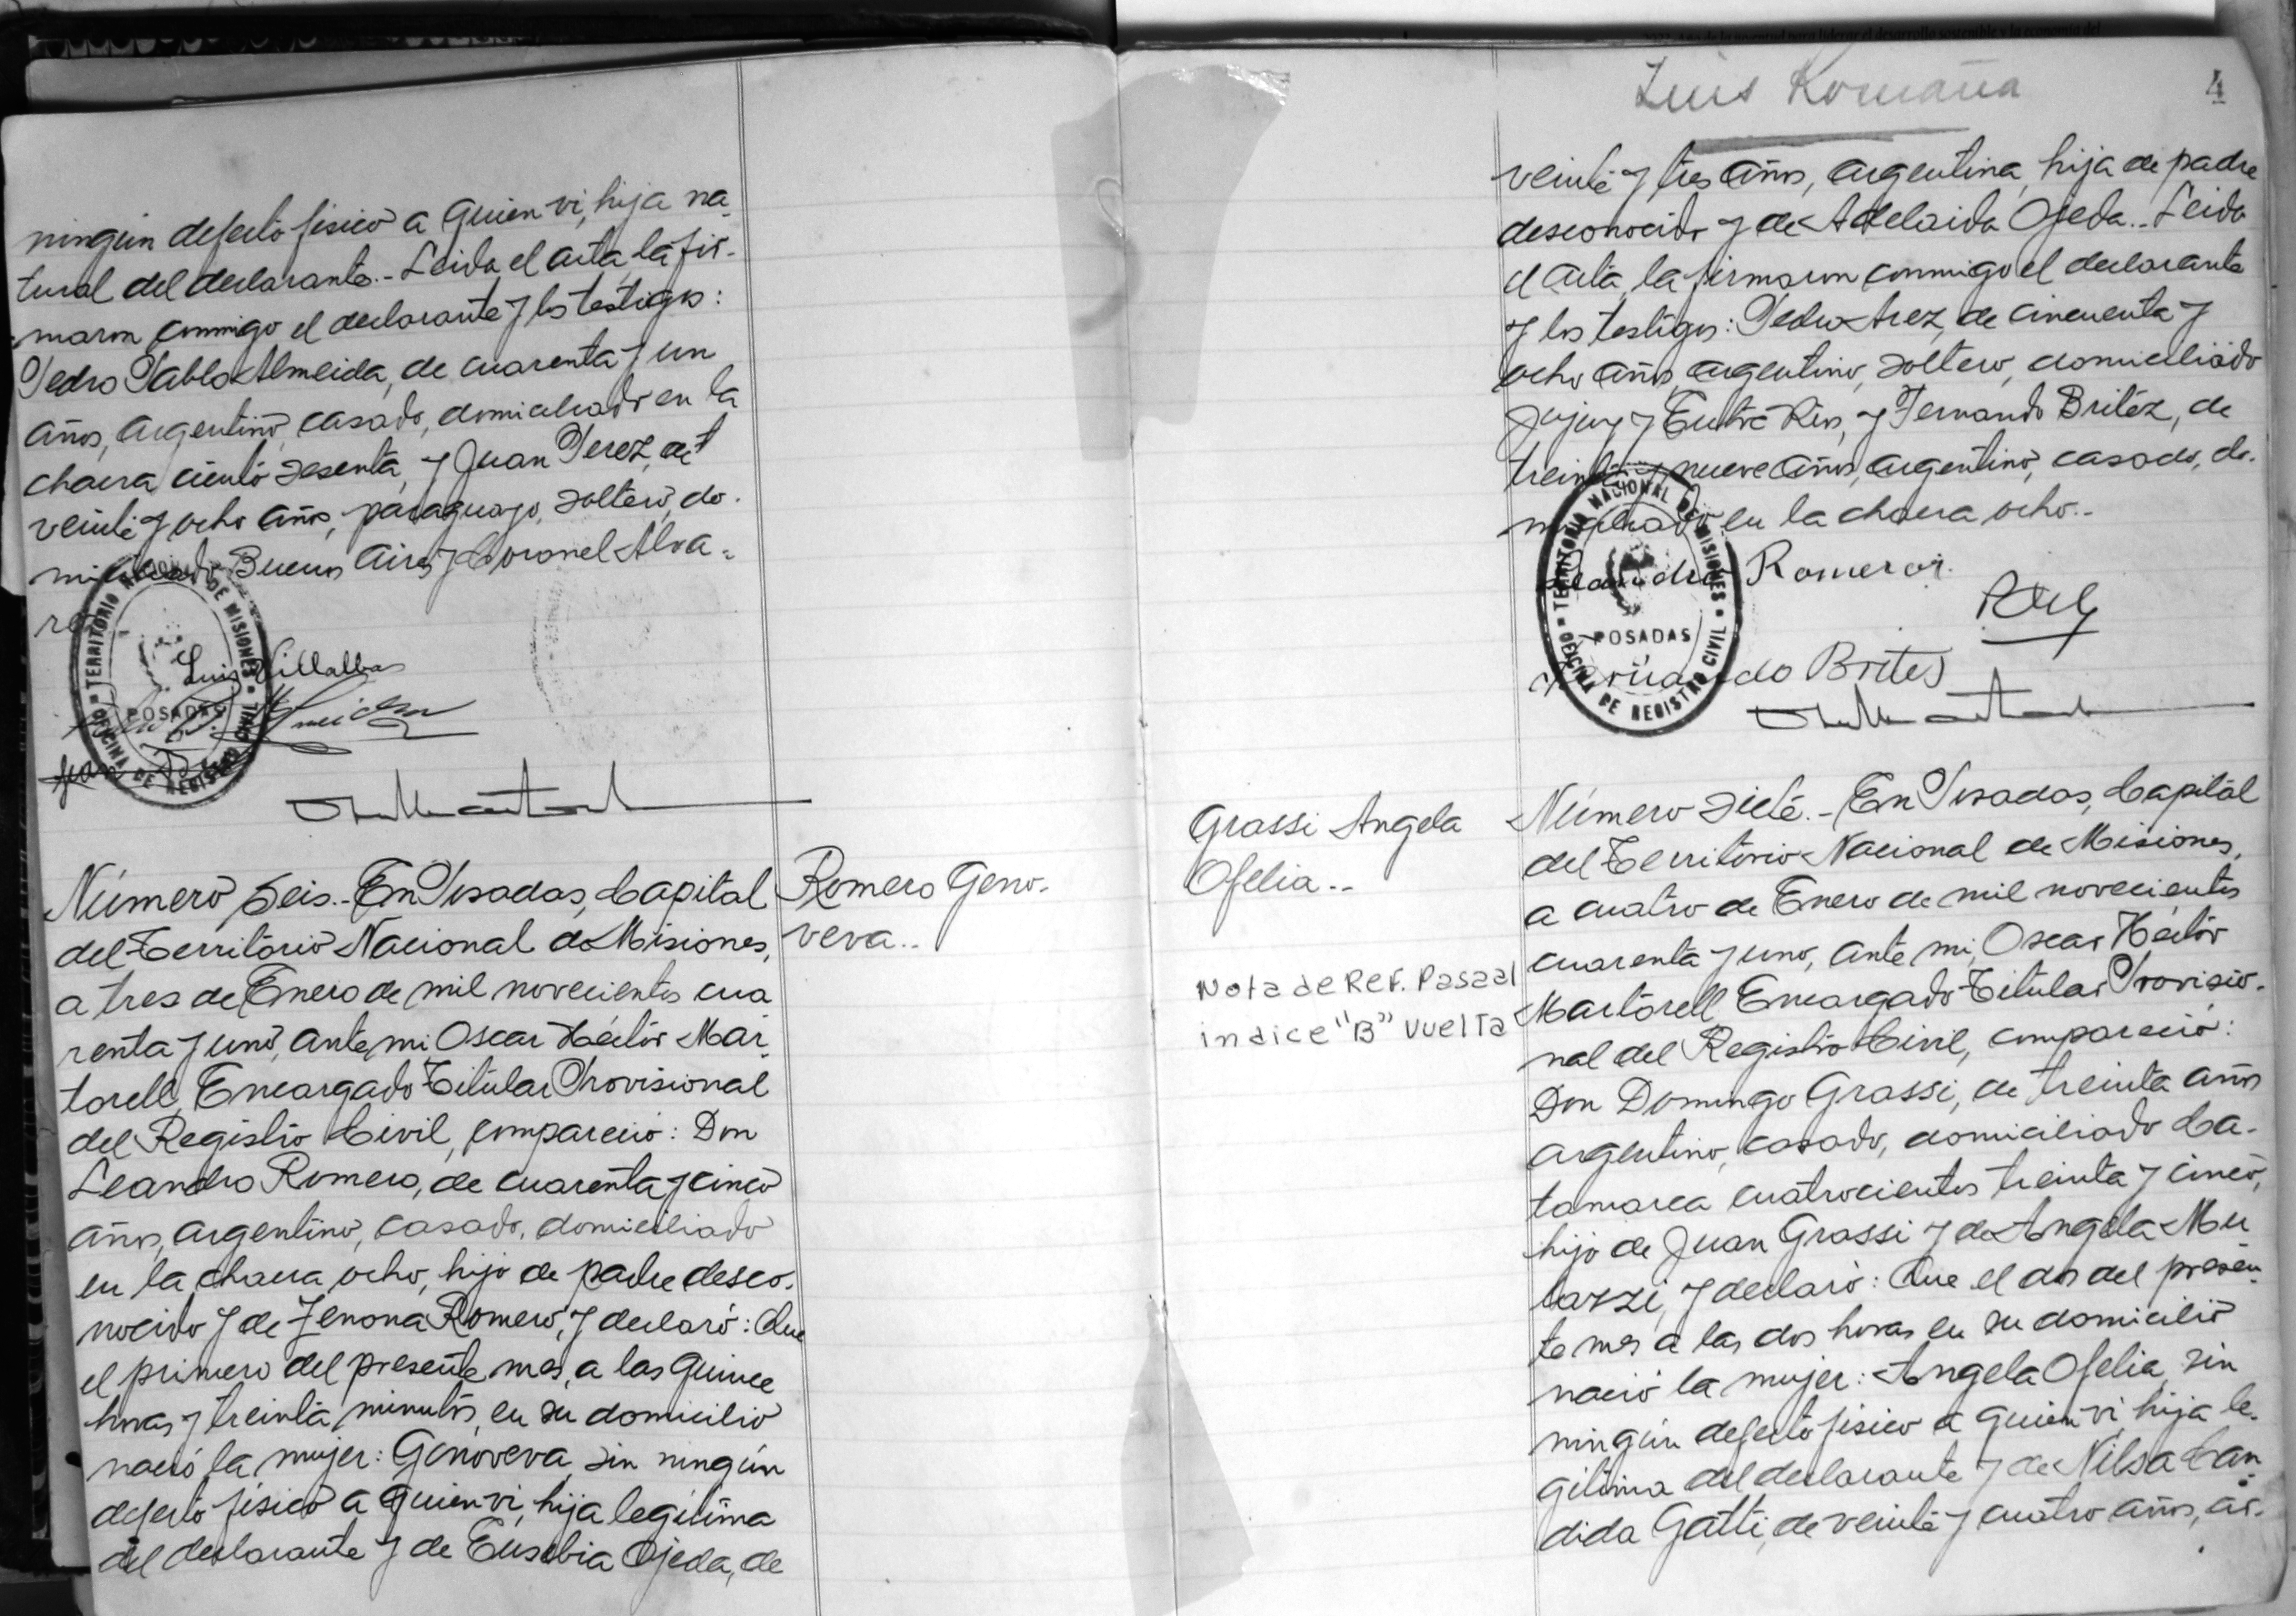 ningún defecto físico a quien vi, hija na-
tural del declarante.- Leida el acta la fir-
maron conmigo el declarante y los testigos:
Pedro Pablo Almeida, de cuarenta y un
años, argentino, casado, domiciliado en la
chacra ciento sesenta, y Juan Perez, de
veinte y ocho años, paraguayo, soltero, do-
miciliado Buenos Aires y Coronel Alva-
re
TERRITORIO NACIONAL DE MISIONES
POSADAS
OFICINA DE REGISTRO CIVIL
Luis Villalba
Almeida
Juan
Número seis.- En Posadas, Capital
del Territorio Nacional de Misiones,
a tres de Enero de mil novecientos cua
renta y uno, ante mi Oscar Héctor Mar-
torell, Encargado Titular Provisional
del Registro Civil, compareció: Don
Leandro Romero, de cuarenta y cinco
años, argentino, casado, domiciliado
en la chacra ocho, hijo de padre desco-
nocido y de Zenona Romero, y declaró: Que
el primero del presente mes, a las quince
horas y treinta minutos, en su domicilio
nació la mujer: Genoveva, sin ningún
defecto físico a quien vi, hija legítima
del declarante y de Eusebia Ojeda, de
Romero Geno-
veva..
Luis Romaña
4
veinte y tres años, argentina, hija de padre
desconocido y de Adelaida Ojeda.- Leida
el acta, la firmaron conmigo el declarante
y los testigos: Pedro Arez, de cincuenta y
ocho años, argentino, soltero, domiciliado
Jujuy y Entre Rios, y Fernando Britez, de
treinta y nueve años, argentino, casado, do-
miciliado en la chacra ocho.-
Leandro Romero
TERRITORIO NACIONAL DE MISIONES
POSADAS
OFICINA DE REGISTRO CIVIL
Fernando Brites
Grassi Angela
Ofelia..
Nota de Ref. Pasa al
indice "B" vuelta
Número siete.- En Posadas, Capital
del Territorio Nacional de Misiones,
a cuatro de Enero de mil novecientos
cuarenta y uno, ante mi, Oscar Héctor
Martorell, Encargado Titular Provisio-
nal del Registro Civil, compareció:
Don Domingo Grassi, de treinta años
argentino, casado, domiciliado Ca-
tamarca cuatrocientos treinta y cinco,
hijo de Juan Grassi y de Angela Mu
tazzi, y declaró: Que el dos del presen-
te mes a las dos horas en su domicilio
nació la mujer: Angela Ofelia, sin
ningún defecto físico a quien vi, hija le-
gitima del declarante y de Nilsa Can-
dida Gatti, de veinte y cuatro años, ar-